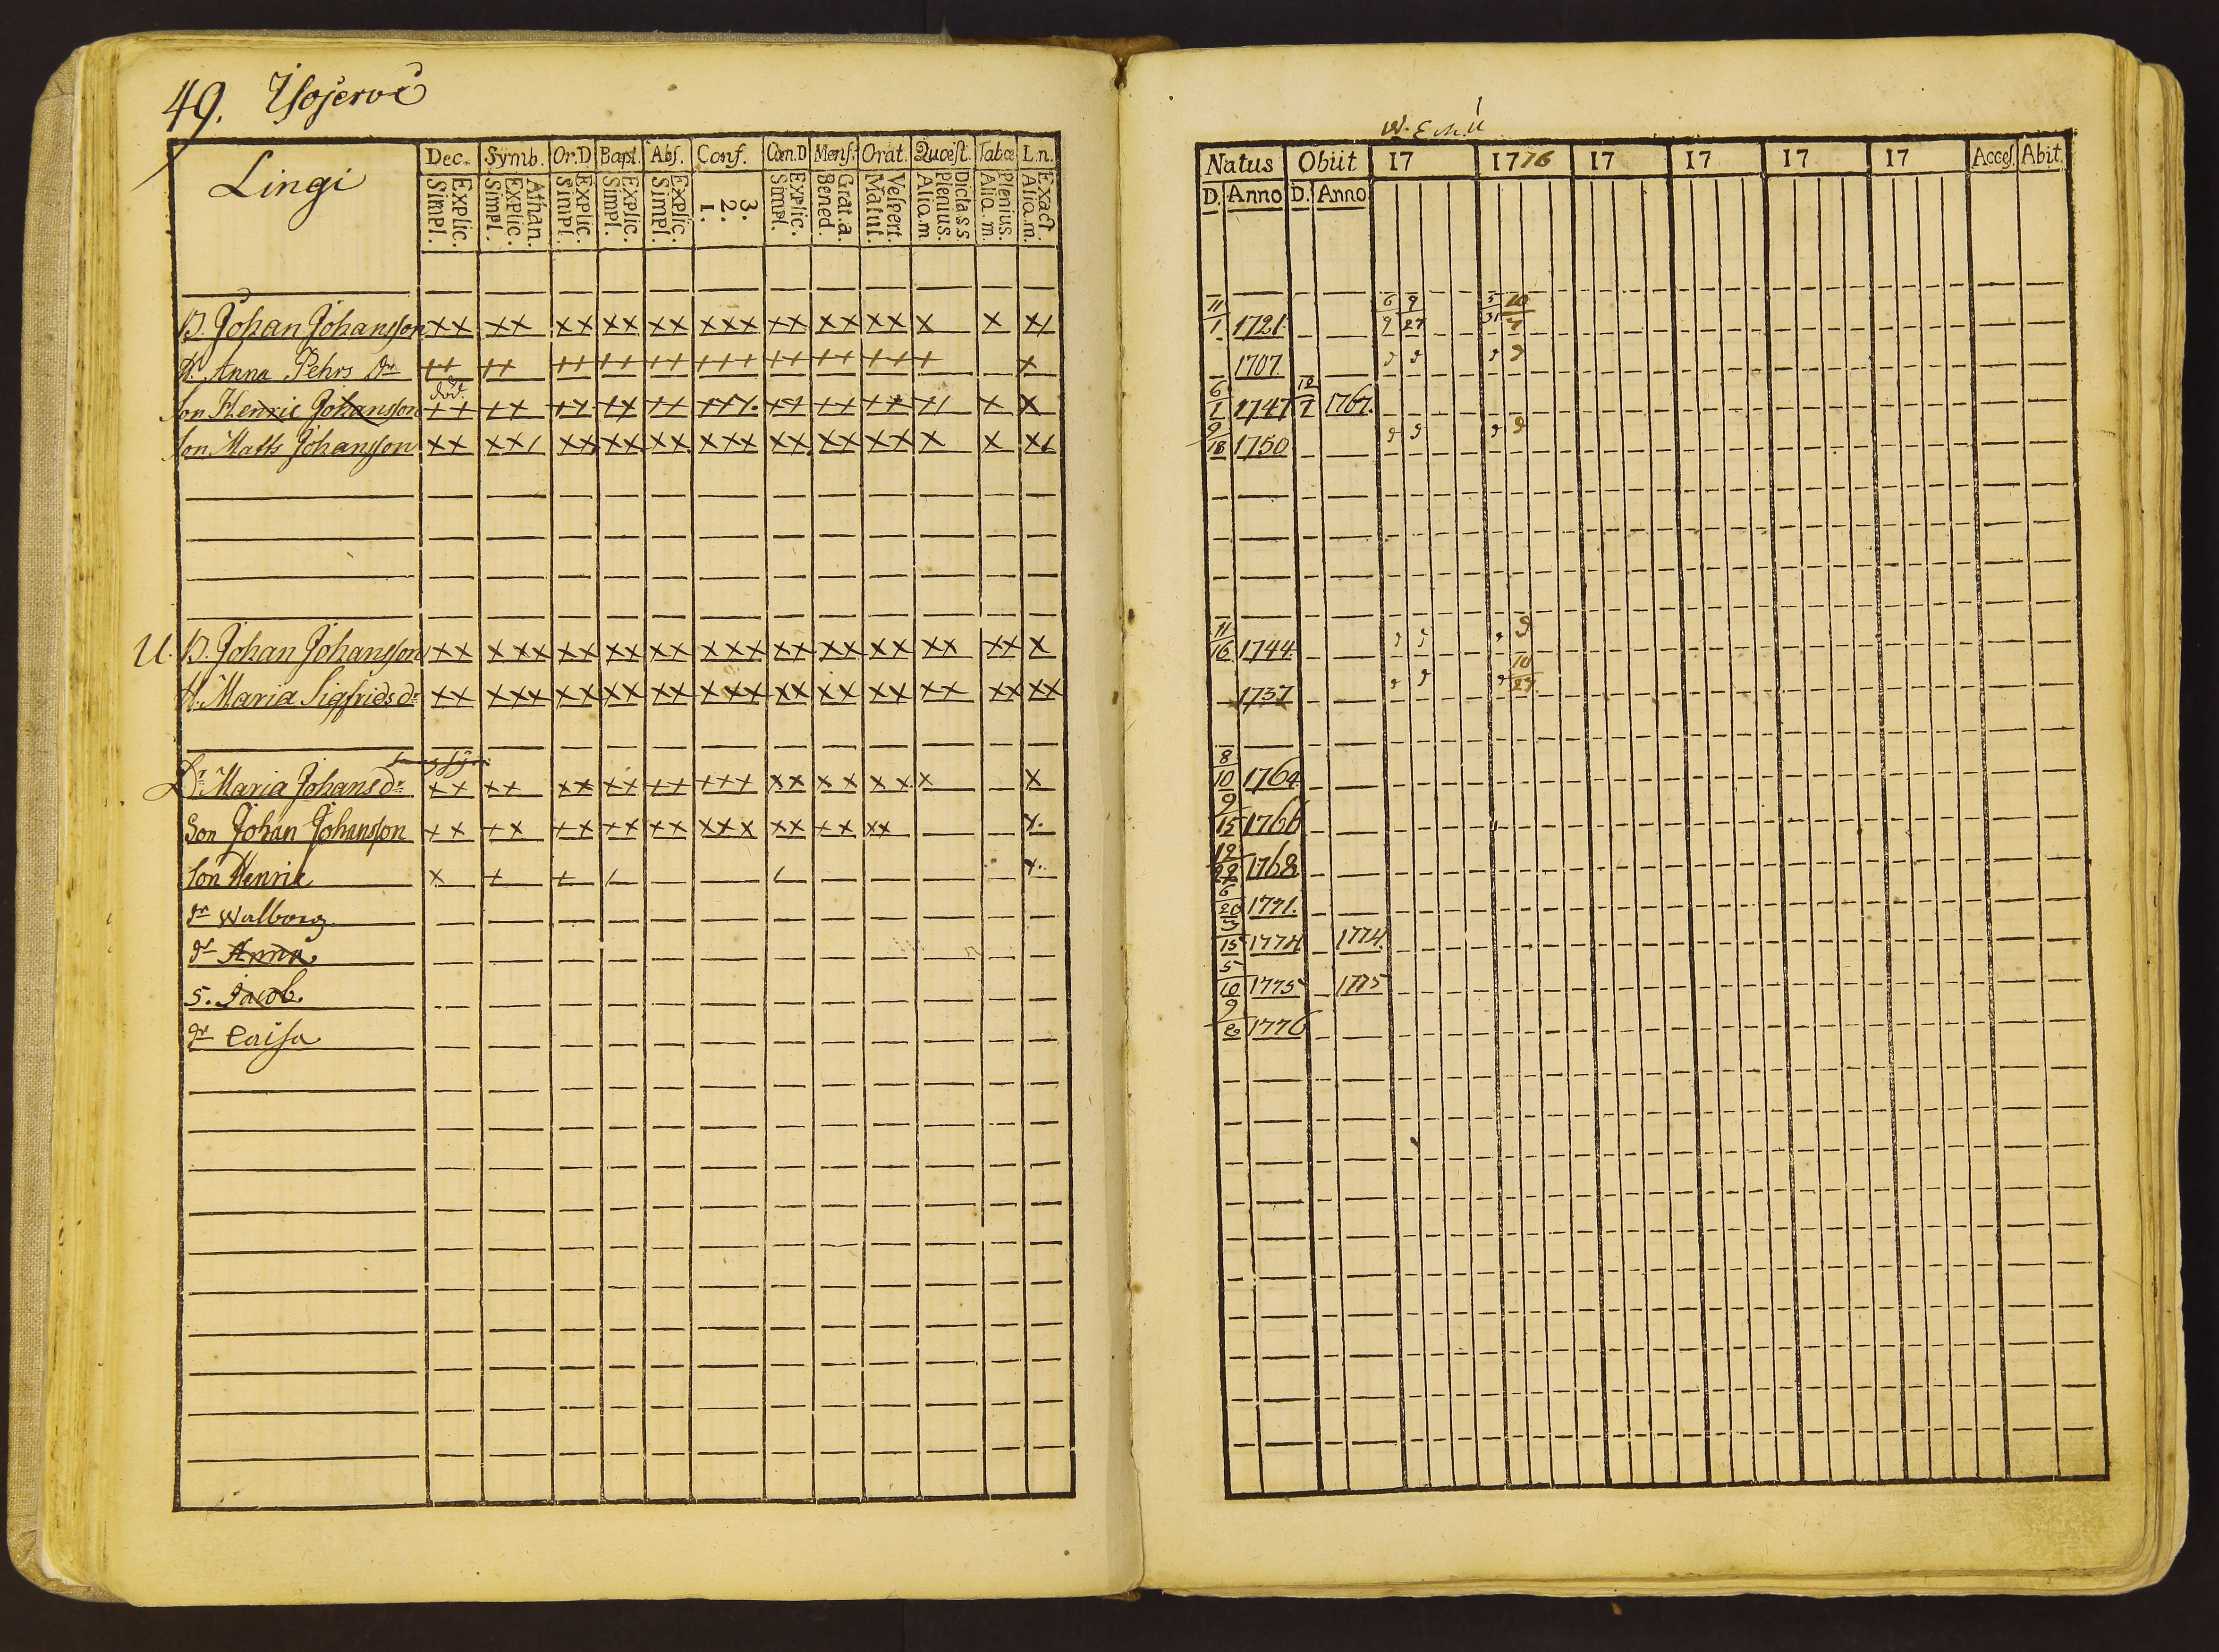 49. Isojervi
Lingi
Dec. Symb. Or.D Bapt. Abs. Conf. Cœn.D Mens. Orat. Quœst. Tabœ L.n.
Explic. Simpl.
Athan. Explic. Simpl.
Explic. Simpl.
Explic. Simpl.
Explic. Simpl.
3. 2. 1.
Explic. Simpl.
Grat.a. Bened.
Vespert. Matut.
Dicta.s.s. Plenius. Aliq.m
Plenius. Aliq.m.
Exact. Aliq.m.
B. Johan Johansson xx xx xx xx xx xxx xx xx xx x x x/
H. Anna Pehrs dr ++ ++ ++ ++ ++ +++ ++ ++ +++ + x
död.
Son Henric Johansson
Son Matts Johansson xx xx/ xx xx xx xxx xx xx xx x x x/
U. B. Johan Johansson xx xxx xx xx xx xxx xx xx xx xx xx x
H. Maria Sigfrids dr xx xxx xx xx xx xxx xx xx xx xx xx xx
Dr Maria Johans dr ++ ++ xx ++ ++ +++ xx xx xx x x
Son Johan Johansson ++ +x ++ ++ xx xxx xx ++ xx x.
Son Henric x + + / / x.
dr Walborg
dr Anna
S. Jacob.
dr Caisa
Natus Obiit 17 1776 17 17 17 17 Acces. Abit.
D. Anno D. Anno
11/1 1721 6/9 9/27 5/31 10/7
1707
6/1 1747 12/1 1767.
9/18 1750
11/16 1744
1737 10/27
8/10 1764
9/15 1766
12/22 1768
6/20 1771.
3/15 1774 1774
5/10 1775 1775
9/2 1776